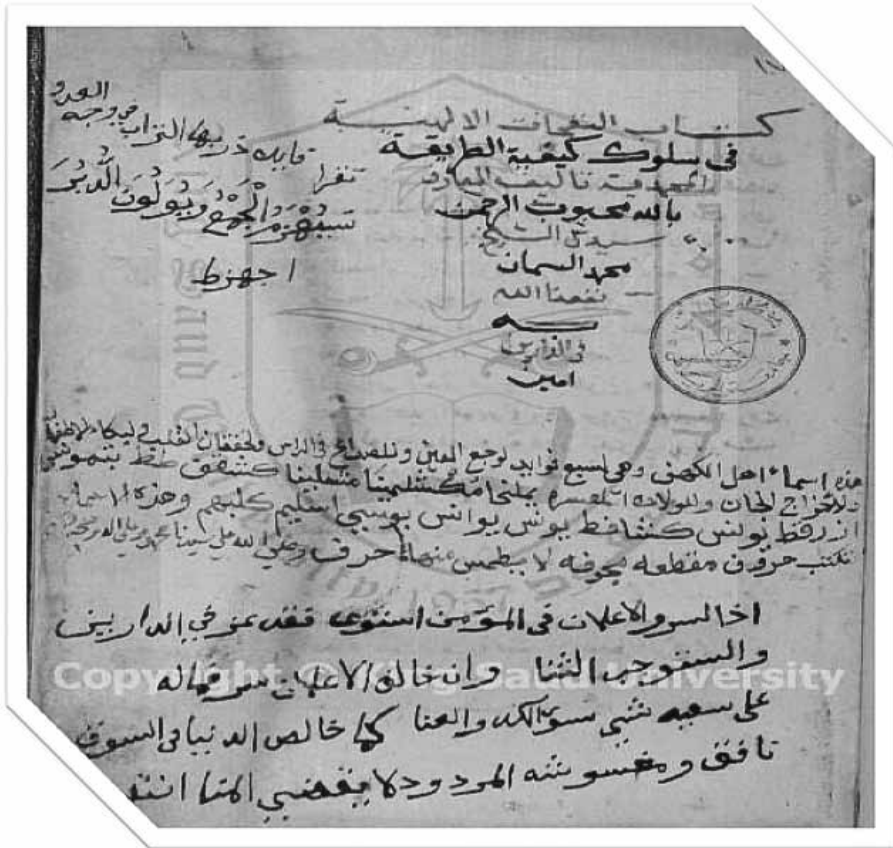 كتاب النفحات الالهية
في سلوك كيفية الطريقة
المحمدية تاليف العارف
بالله محبوب الرحمن
سيدي الشيخ
محمد السمان
نفعنا الله
به
في الدارين
امين
فايده ذر بها التراب في وجه العدو
تنفرا
سَيُهْزَمُ الْجَمْعُ وَيُوَلُّونَ الدُّبُرَ
اجهزط
هذه اسماء اهل الكهف وهي لسبع فوايد لوجع العين وللصداع في الراس ولخفقان القلب
ولاخراج الجان وللولادة المعسره يمليخا مكشلمينا مثلينا كشفق طط
كلبهم وهذه الاسماء
تكتب حروف مقطعه مجوفه لا يطمس منها حرف وصلى الله على سيدنا محمد
اذا السر والاعلان في المؤمن استوى فقد عز في الدارين
واستوجب الثنا وان خالف الاعلان سر فماله
على سعيه شي سوى الكد والعنا كما خالص الدنيا في السوق
نافق ومغشوشه المردود لا يقتضي المنا
Copyright © King Saud University